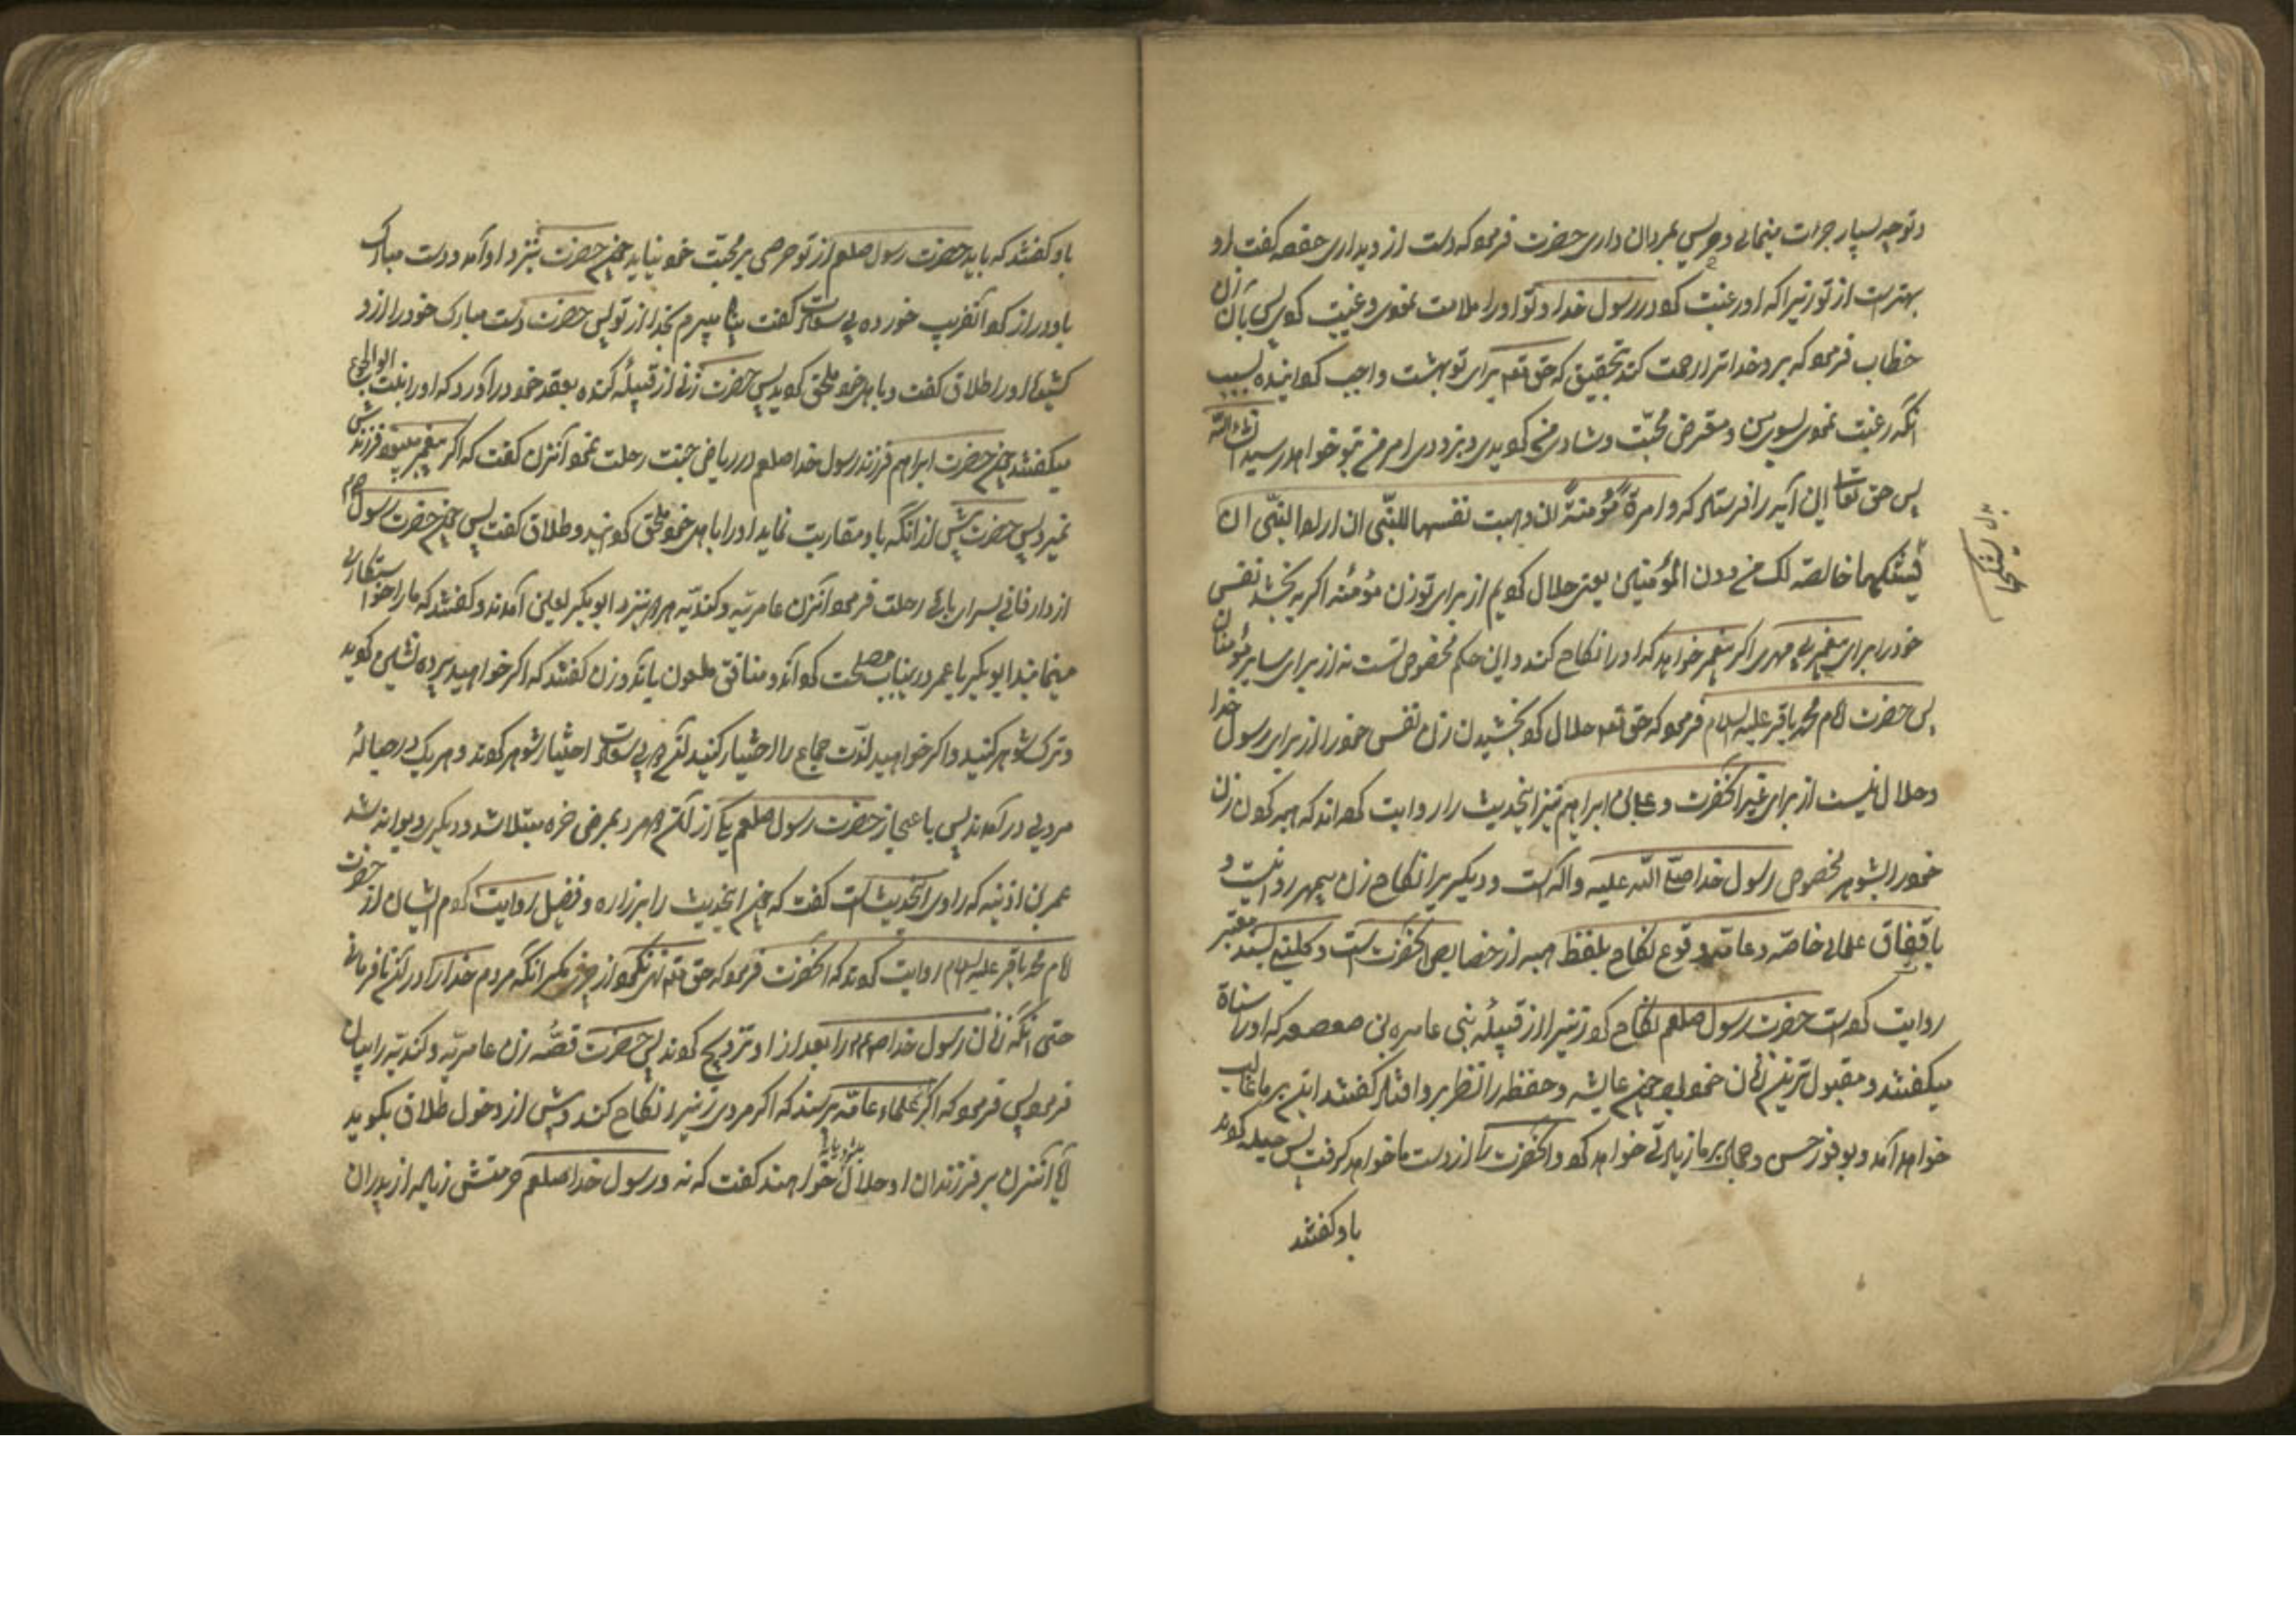 و توچه بسیار جرات مینمائی و حریص بمردان داری حضرت فرمود که دست از وی بداری حفصه که او
بهترست از تو زیرا که او رغبت کرد در رسول خدا و تو او را ملامت نمودی و غیبت کردی پس بآن زن
خطاب فرمود که برو خدا ترا رحمت کند بتحقیق که حق تعه برای تو بهشت واجب گردانیده بسبب
آنکه رغبت نمودی بسوی من و متعرض محبت و شادی من گردیدی و بزودی امر من بتو خواهد رسید انشاء الله
پس حق تعالی این آیه را فرستاد که وامرة مؤمنة ان وهبت نفسها للنبی ان اراد النبی ان
یستنکحها خالصة لک من دون المؤمنین یعنی حلال کردیم از برای تو زن مؤمنه اگر به بخشد نفس
خود را برای پیغمبر بی مهری اگر پیغمبر خواهد که او را نکاح کند و این حکم مخصوص تست نه از برای سایر مؤمنان
پس حضرت امام محمد باقر علیه السلام فرمود که حق تعه حلال کرد بخشیدن زن نفس خود را از برای رسول خدا
و حلال نیست از برای غیر آنحضرت و علی بن ابراهیم نیز اینحدیث را روایت کرده اند که هبه کردن زن
خود را بشوهر مخصوص رسول خدا صلی الله علیه وآله است و دیگریرا نکاح زن بیمهر روا نیست و
باتفاق علمای خاصه و عامه وقوع نکاح بلفظ هبه از خصایص آنحضرت است و کلینی بسند معتبر
روایت کرده است حضرت رسول صلعم نکاح کرد زنیرا از قبیلهٔ بنی عامر بن صعصعه که او را سناة
میگفتند و مقبول ترین زنان خود بود چون عایشه و حفظه را نظر برو افتاد گفتند این بر ما غالب
خواهد آمد و بوفور حسن و جمال بر ما زیادتی خواهد کرد و آنحضرت را از دست ما خواهد گرفت پس حیله کردند
باو گفتند
بدل یستنکحها
باو گفتند که باید حضرت رسول صلعم از تو حرصی بر محبت خود نیابد چون حضرت بنزد او آمد و دست مبارک
باو دراز کرد آنفریب خورده بی سعادت گفت پناه میبرم بخدا از تو پس حضرت دست مبارک خود را از و
کشید و او را طلاق گفت و باهل خود ملحق گردید پس حضرت زنی از قبیلهٔ کنده بعقد خود درآورد که او را بنت ابوالجون
میگفتند چون حضرت ابراهیم فرزند رسول خدا صلعم در ریاض جنت رحلت نمود آنزن گفت که اگر پیغمبر میبود فرزندش
نمیرد پس حضرت پیش از آنکه باو مقاربت نماید او را باهل خود ملحق گردانید و طلاق گفت پس چون حضرت رسول صلعم
از دار فانی بسرای باقی رحلت فرمود آنزن عامریه و کندیه هر دو بنزد ابوبکر لعین آمدند و گفتند که ما را خواستکاری
مینمایند ابوبکر با عمر درینباب مصلحت کرد آندو منافق ملعون باندو زن گفتند که اگر خواهید پرده نشین گردید
و ترک شوهر کنید و اگر خواهید لذت جماع را اختیار کنید آندو بی سعادت اختیار شوهر کردند و هر یک در حبالهٔ
مردی درآمدند پس باعجاز حضرت رسول صلعم یکی از آندو مرد بمرض خوره مبتلا شد و دیگر دیوانه شد
عمر بن اذینه که راوی اینحدیث است گفت که چون اینحدیث را بزراره و فضیل روایت کردم ایشان از حضرت
امام محمد باقر علیه السلام روایت کردند که آنحضرت فرمود که حق تعه نهی نکرد از چیزی مگر آنکه مردم خدا را در آن نافرمانی
حتی آنکه زنان رسول خدا صلعم را بعد از او تزویج کردند پس حضرت قصهٔ زن عامریه و کندیه را بیان
فرمود پس فرمود که اگر از علماء عامه پرسند که اگر مردی زنیرا نکاح کند و پیش از دخول طلاق بگوید
آیا آنزن بر فرزندان او حلال خواهند گفت که نه و رسول خدا صلعم حرمتش زیاده از پدران